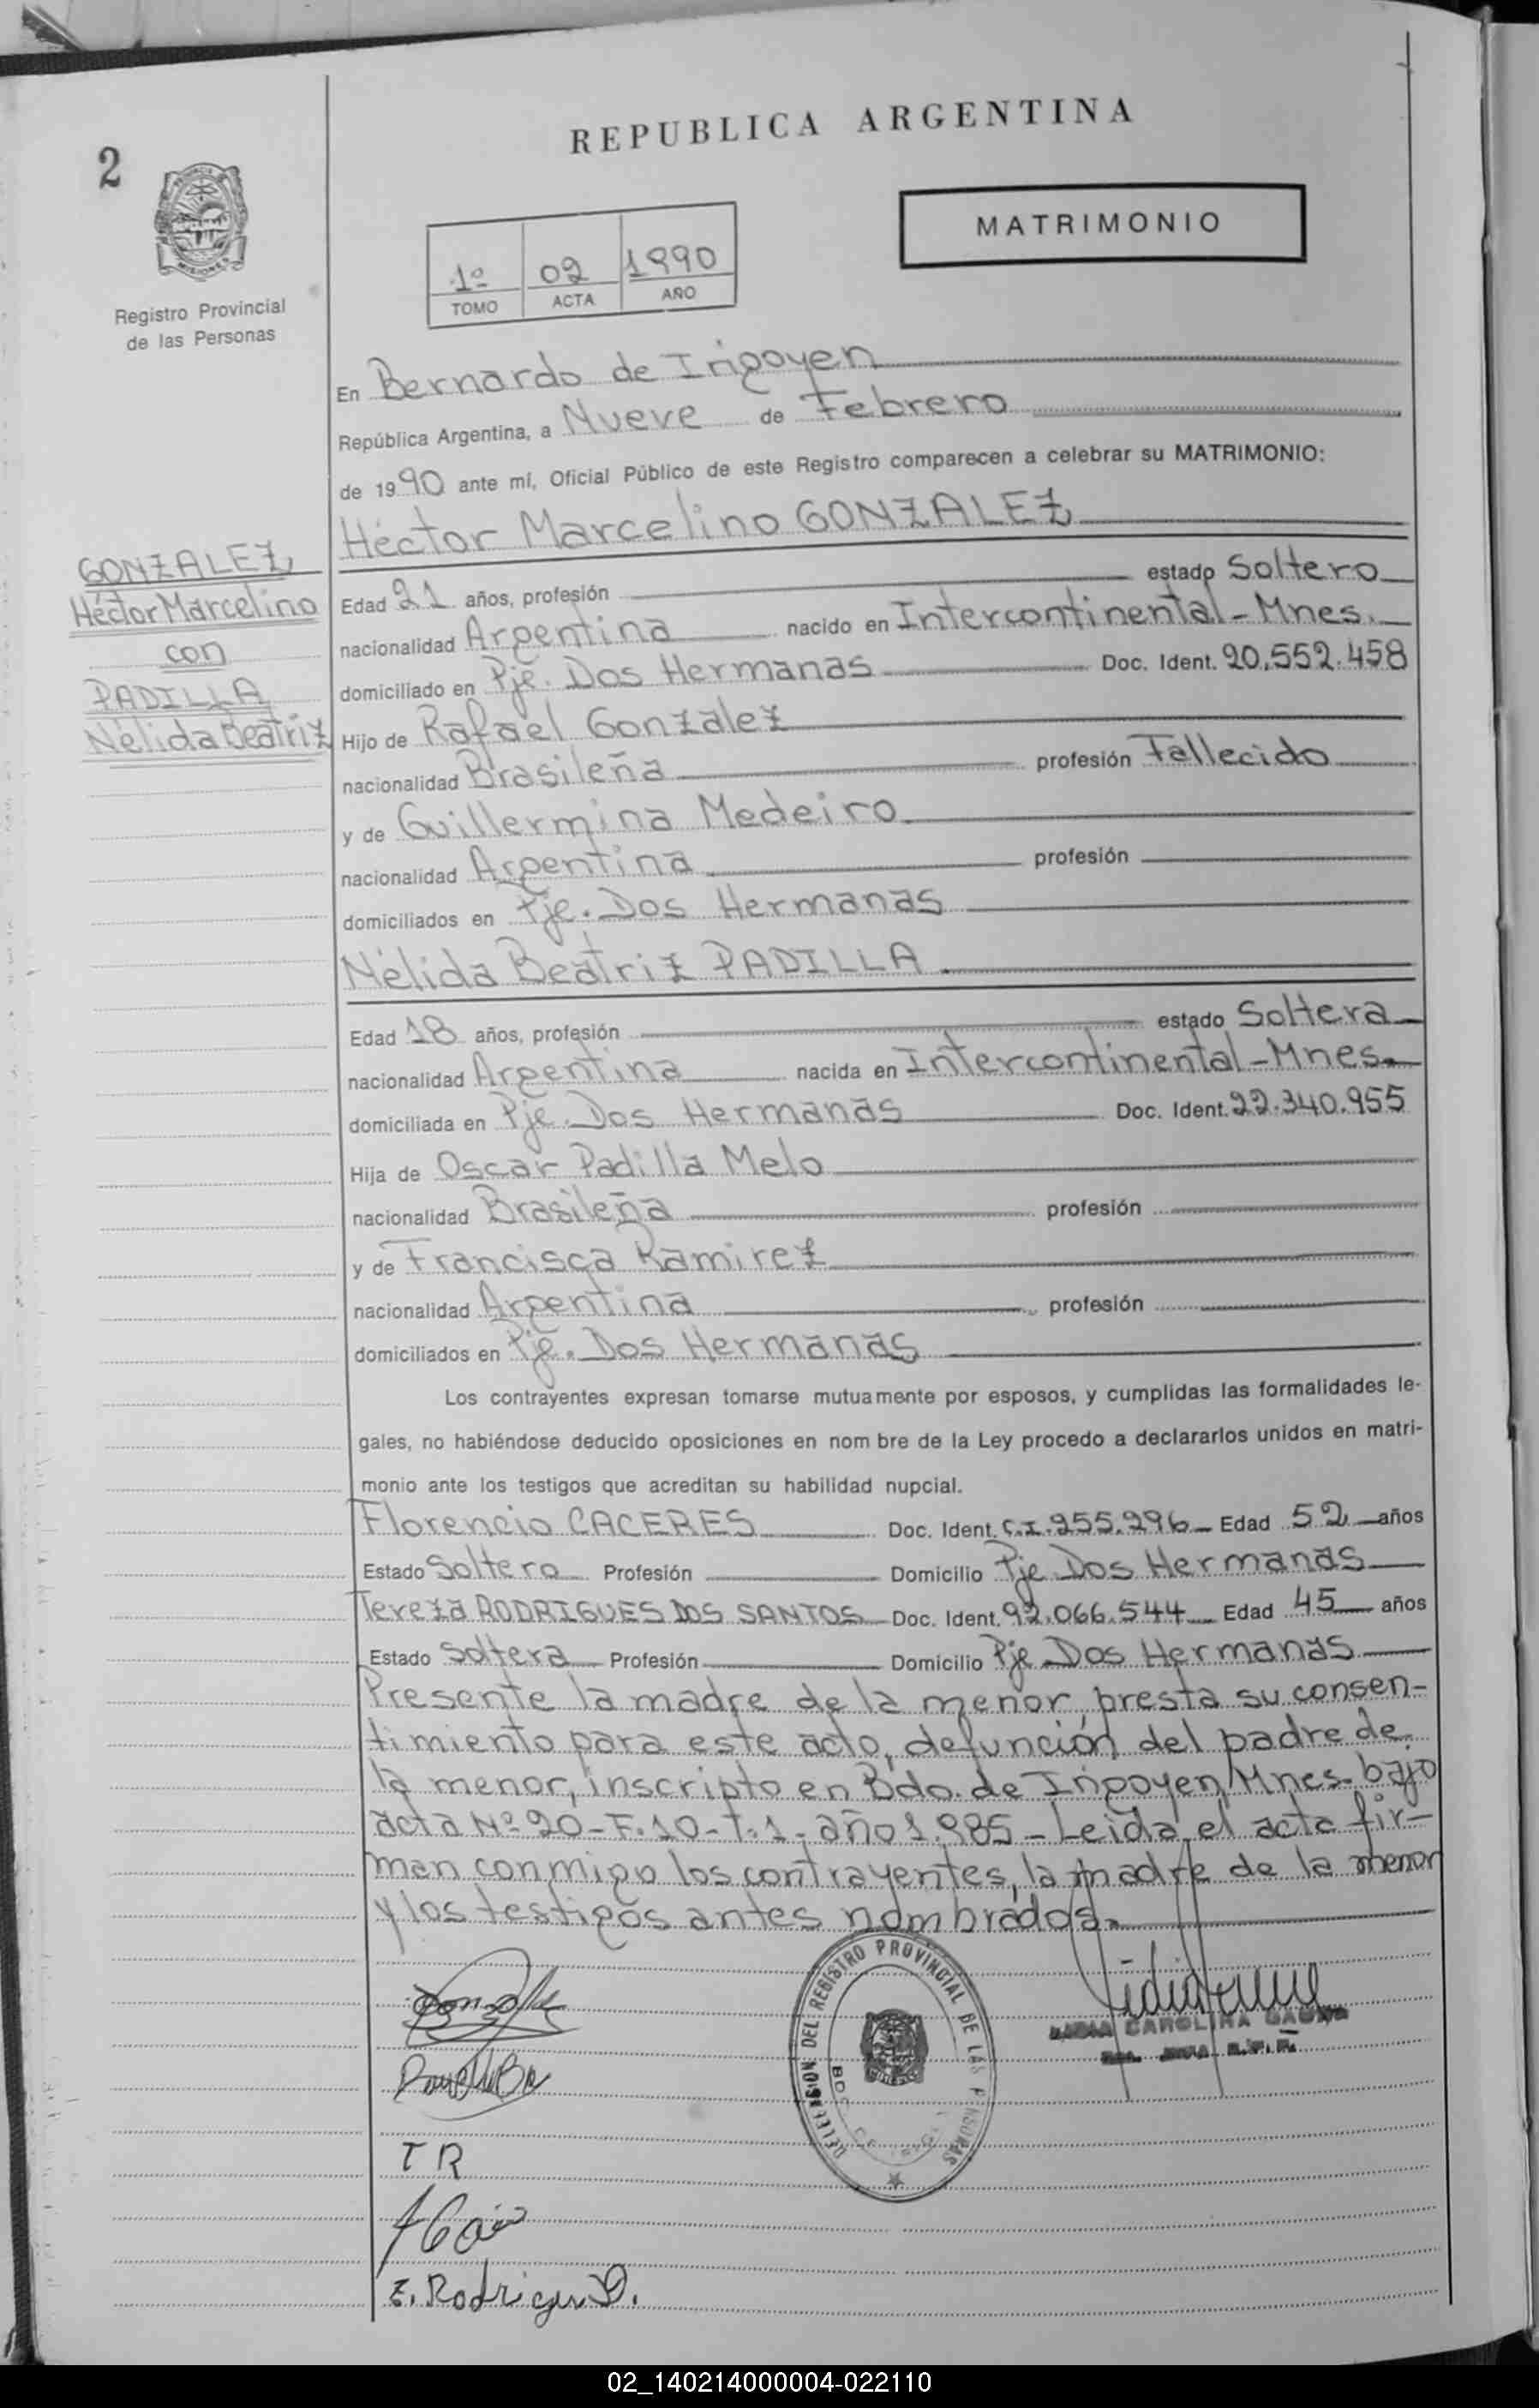 REPUBLICA ARGENTINA
2
MISIONES
Registro Provincial
de las Personas
1º 02 1990
TOMO ACTA AÑO
MATRIMONIO
En Bernardo de Irigoyen
República Argentina, a Nueve de Febrero
de 1990 ante mí, Oficial Público de este Registro comparecen a celebrar su MATRIMONIO:
Héctor Marcelino GONZALEZ
GONZALEZ
Héctor Marcelino
con
PADILLA
Nélida Beatriz
Edad 21 años, profesión estado Soltero
nacionalidad Argentina nacido en Intercontinental-Mnes.
domiciliado en Pje. Dos Hermanas Doc. Ident. 20.552.458
Hijo de Rafael González
nacionalidad Brasileña profesión Fallecido
y de Guillermina Medeiro
nacionalidad Argentina profesión
domiciliados en Pje. Dos Hermanas
Nélida Beatriz PADILLA
Edad 18 años, profesión estado Soltera
nacionalidad Argentina nacida en Intercontinental-Mnes.
domiciliada en Pje. Dos Hermanas Doc. Ident. 22.340.955
Hija de Oscar Padilla Melo
nacionalidad Brasileña profesión
y de Francisca Ramirez
nacionalidad Argentina profesión
domiciliados en Pje. Dos Hermanas
Los contrayentes expresan tomarse mutuamente por esposos, y cumplidas las formalidades le-
gales, no habiéndose deducido oposiciones en nom bre de la Ley procedo a declararlos unidos en matri-
monio ante los testigos que acreditan su habilidad nupcial.
Florencio CACERES Doc. Ident. C.I. 255.296 Edad 52 años
Estado Soltero Profesión Domicilio Pje Dos Hermanas
Tereza RODRIGUES DOS SANTOS Doc. Ident. 92.066.544 Edad 45 años
Estado Soltera Profesión Domicilio Pje Dos Hermanas
Presente la madre de la menor, presta su consen-
timiento para este acto, defunción del padre de
la menor, inscripto en Bdo. de Irigoyen, Mnes. bajo
acta Nº 20-F.10-T.1- año 1.985- Leída el acta fir-
man conmigo los contrayentes, la madre de la menor
y los testigos antes nombrados.
DELEGACION DEL REGISTRO PROVINCIAL DE LAS PERSONAS
BDO. DE
CAROLINA
T R
E. Rodrigues D.
02_140214000004-022110